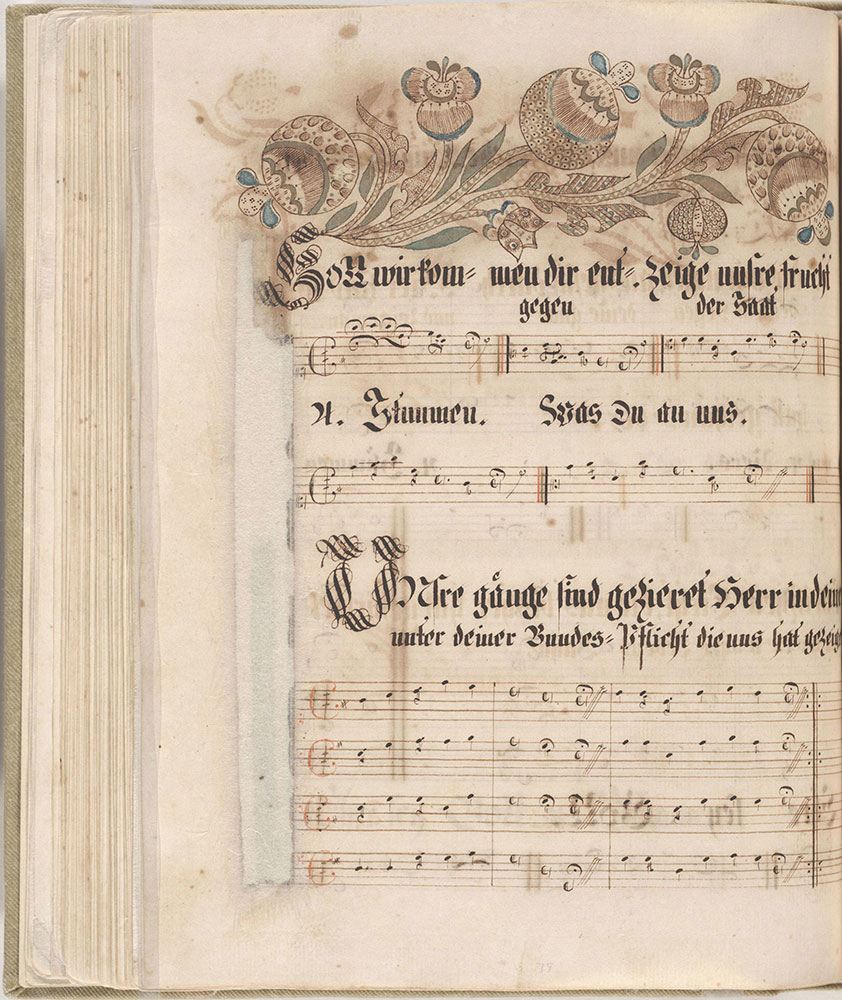 Gott wir kom= men dir ent=. zeige unsre frucht
gegen der Saat
4. Stimmen. Was Du an uns.
UNsre gänge sind gezieret Herr in deine
unter deiner Bundes=Pflicht die uns hat gezeig